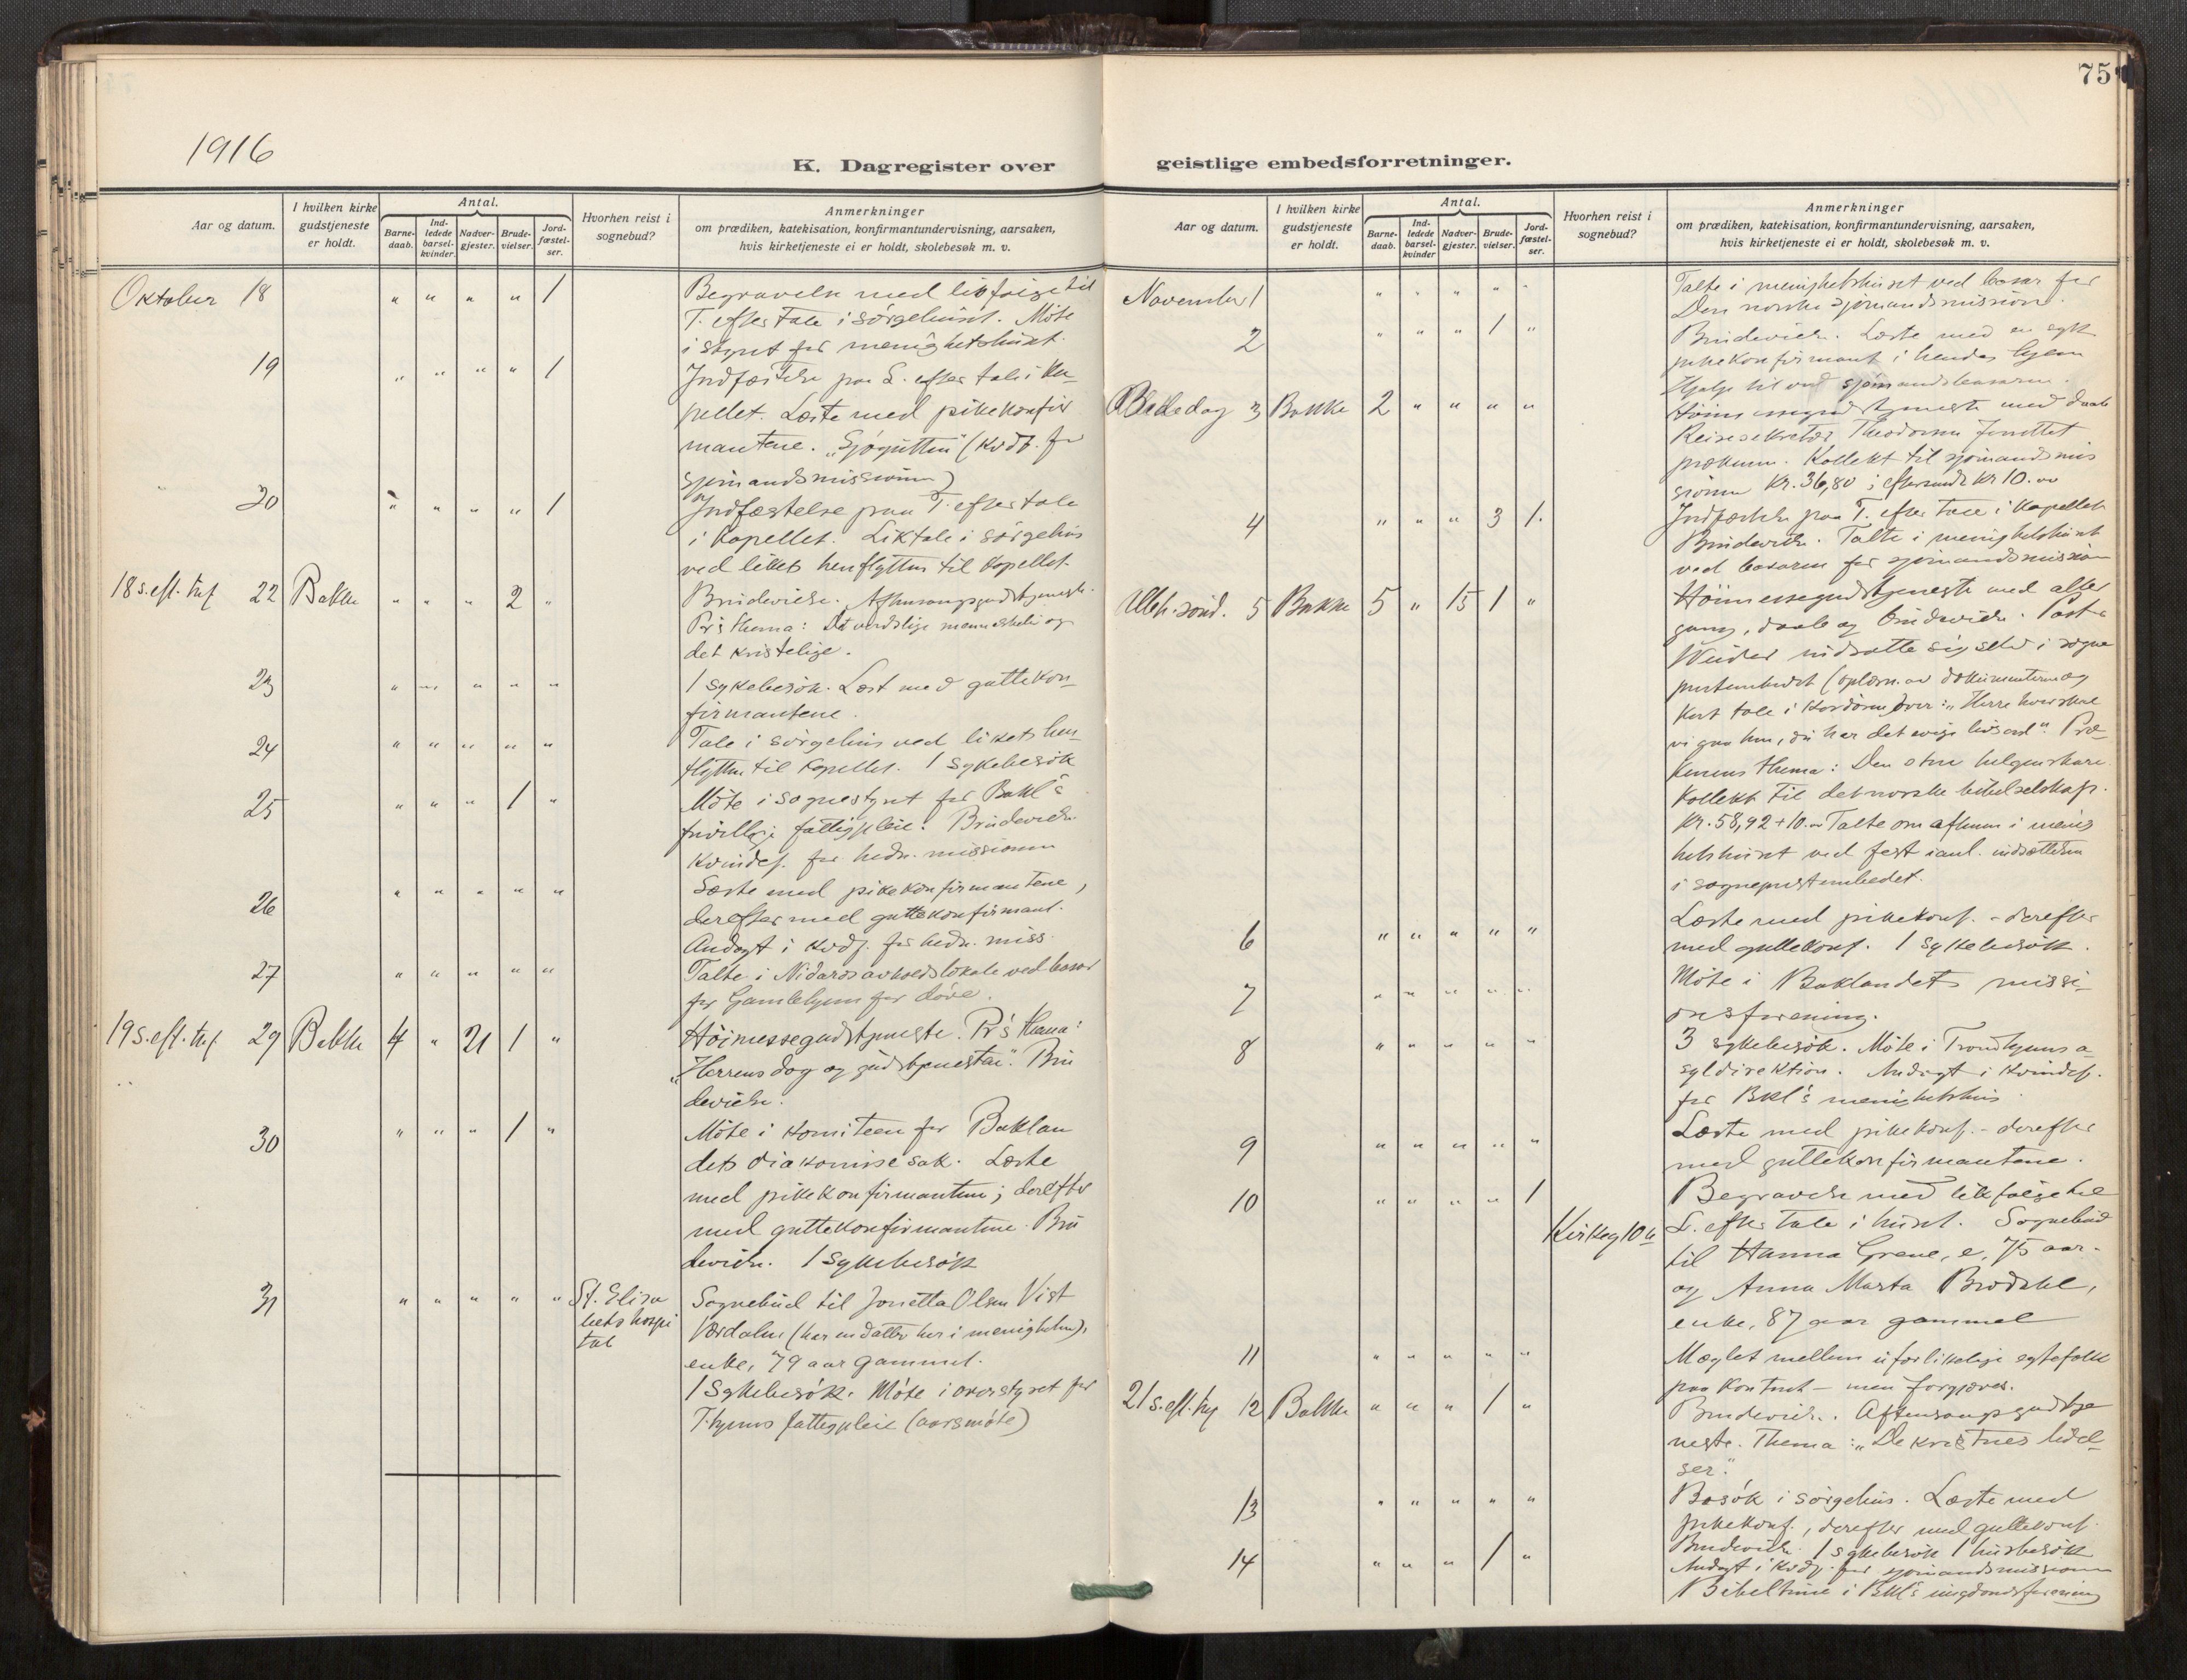 75
1916
K. Dagregister over
geistlige embedsforretninger.
Aar og datum.
I hvilken kirke gudstjeneste er holdt.
Antal.
Barne-daab.
Ind-ledede barsel-kvinder.
Nadver-gjester.
Brude-vielser.
Jord-fæstel-ser.
Hvorhen reist i sognebud?
Anmerkninger
om prædiken, katekisation, konfirmantundervisning, aarsaken,
hvis kirketjeneste ei er holdt, skolebesøk m. v.
Oktober 18 " " " " 1
Begravelse med likfølge til
T. efter tale i sørgehuset. Møte
i styret for menighetshuset.
19 " " " " 1
Jordfæstelse paa L. efter tale i Ka-
pellet. Læste med pikekonfir
mantene. "Sjøgutten" (kvdf. for
sjømandsmissionen)
20 " " " " 1
Jordfæstelse paa T. efter tale
i Kapellet. Liktale i sørgehus
ved likets henflytten til Kapellet.
18 s. eft. tref. 22 Bakke " " " 2 "
Brudevielse. Aftensangsgudstjeneste.
Pr's thema: Det verdslige menneskeliv og
det kristelige.
23 " " " " "
1 sykebesøk. Læst med guttekon-
firmantene.
24 " " " " "
Tale i sørgehus ved likets hen-
flytten til Kapellet. 1 sykebesøk
25 " " " 1 "
Møte i sognestyret for Bakl's
frivillige fattigpleie. Brudevielse
Kvindef. for hedn. missionen
26 " " " " "
Læste med pikekonfirmantene,
derefter med guttekonfirmant.
Andagt i kvdf. for hedn. miss.
27 " " " " "
Talte i Nidaros avholdslokale ved basar
for Gamlehjem for døve.
19 s. eft. tref. 29 Bakke 4 " 21 1 "
Høimessegudstjeneste. Pr's thema:
"Herrens dag og gudstjenesten". Bru
devielse.
30 " " " 1 "
Møte i komiteen for Baklan
dets diakonisse sak. Læste
med pikekonfirmantene; derefter
med guttekonfirmantene. Bru
devielse. 1 sykebesøk
31 " " " " "
St. Elisa
bets hospi
tal
Sognebud til Jonetta Olsen Vist
Værdalen (har en datter her i menigheten),
enke, 79 aar gammel.
1 Sykebesøk. Møte i overstyret for
T.hjems fattigpleie (aarsmøte)
Aar og datum.
I hvilken kirke gudstjeneste er holdt.
Antal.
Barne-daab.
Ind-ledede barsel-kvinder
Nadver-gjester.
Brude-vielser.
Jord-fæstel-ser.
Hvorhen reist i sognebud?
Anmerkninger
om prædiken, katekisation, konfirmantundervisning, aarsaken,
hvis kirketjeneste ei er holdt, skolebesøk m. v.
November 1 " " " " "
Talte i menighetshuset ved basar for
Den norske sjømandsmission.
2 " " " 1 "
Brudevielse. Læste med en syk
pikekonfirmant i hendes hjem
Hjalp til ved sjømandsbasaren.
Bededag 3 Bakke 2 " " " "
Høimessegudstjeneste med daab
Reisesekretær Theodorsen forrettet
prækenen. Kollekt til sjømandsmis
sionen Kr. 36,80; eftersendt kr 10.00
4 " " " 3 1.
Jordfæstelse paa T. efter tale i Kapellet
Brudevielse. Talte i menighetshuset
ved basaren for sjømandsmission
Alleh. sønd. 5 Bakke 5 " 15 1 "
Høimessegudstjeneste med alter
gang, daab og brudevielse. Past.
indsatte sig selv i sogne
prestembedet (oplæsn. av dokumenterne og
kort tale i Kordøren over: "Herre hvor skal
vi gaa hen, du har det evige livs ord". Præ-
kenens thema: Den store helgenskare.
Kollekt til det norske bibelselskap.
Kr. 58,92 + 10.00 Talte om aftenen i menig
hetshuset ved fest i anl. indsættelsen
i sogneprestembedet.
6 " " " " "
Læste med pikekonf. - derefter
med guttekonf. 1 sykebesøk.
7 " " " " "
Møte i Baklandets missi-
onsforening.
8 " " " " "
3 sykebesøk. Møte i Trondhjems a-
syldirektion. Andagt i kvindef.
for Bkl's menighetshus.
9 " " " " "
Læste med pikekonf. - derefter
med guttekonfirmantene.
10 " " " " 1
Kirkeg 10 a
Begravelse med likfølge til
L. efter tale i huset. Sognebud
til Hanna Grene, e, 75 aar.
og Anna Marta Brodahl,
enke, 87 aar gammel
11 " " " " "
Mæglet mellem uforlikelige egtefolk
paa Kontoret – men forgjæves.
21 s. eft. tref 12 Bakke " " " 1 "
Brudevielse. Aftensangsgudstje
neste. Thema: "De kristnes lidel-
ser."
13 " " " " "
Besøk i sørgehus. Læste med
pikekonf., derefter med guttekonf.
14 " " " 1 "
Brudevielse. 1 sykebesøk 1 husbesøk
Andagt i kvdf. for sjømandsmissionen
Bibeltime i Bkl's ungdomsforening